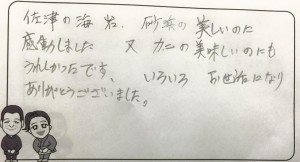 佐津の海岩、砂浜の美しいのに
感動しました 又 カニの美味しいのにも
うれしかったです、 いろいろ お世話になり
ありがとうございました。